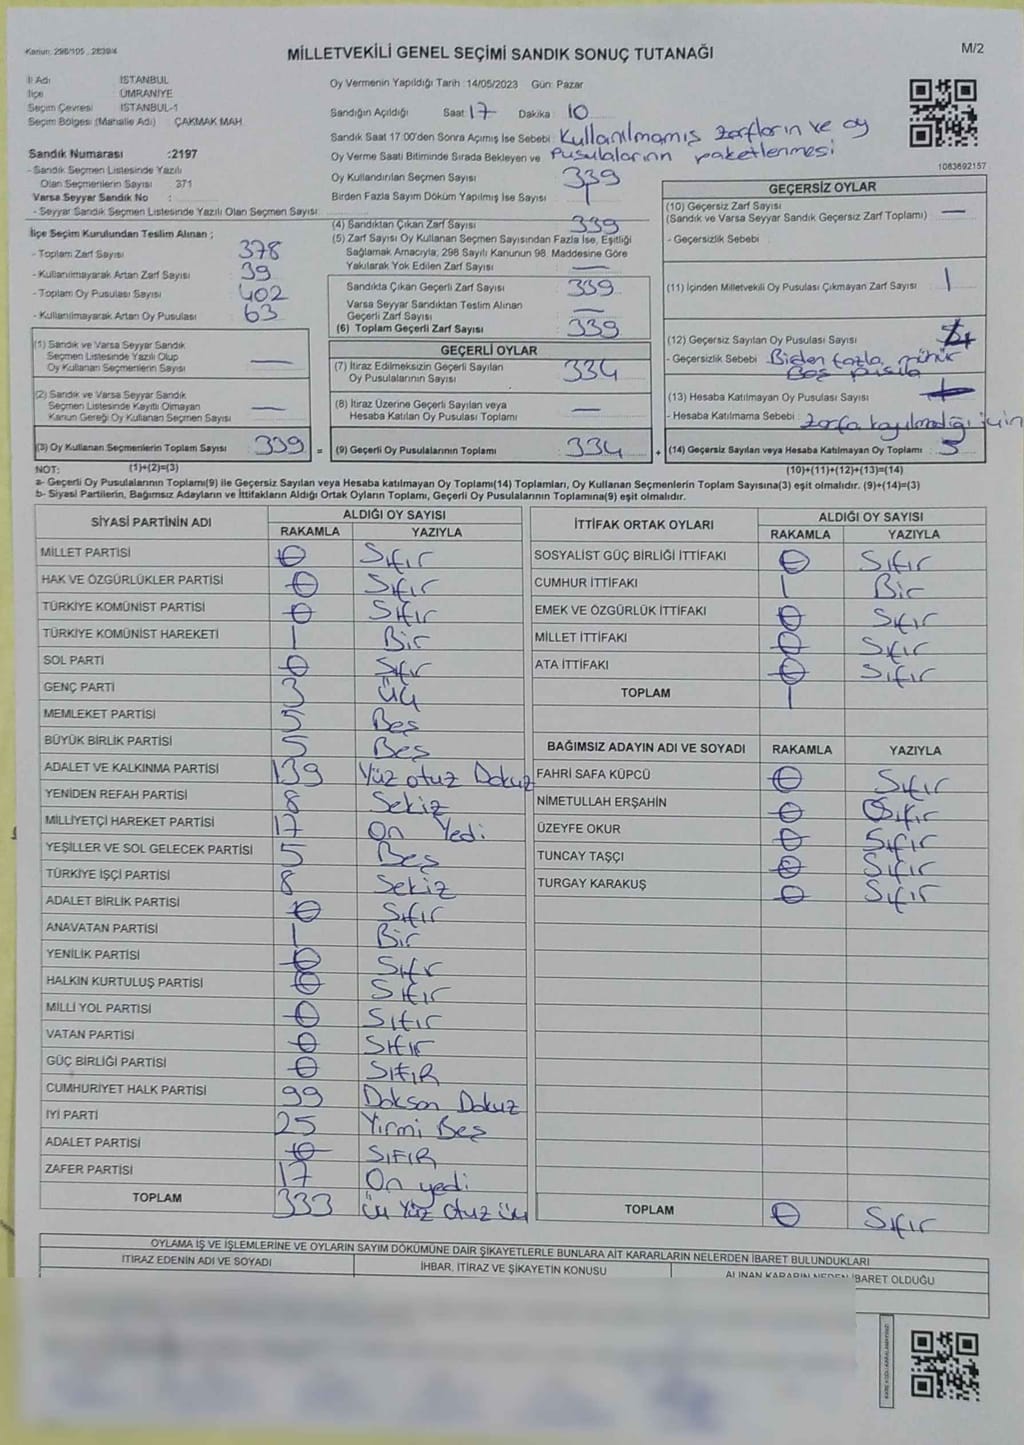 Kanun: 298/105 , 2839/4
MİLLETVEKİLİ GENEL SEÇİMİ SANDIK SONUÇ TUTANAĞI
M/2
İl Adı : İSTANBUL
İlçe : ÜMRANİYE
Seçim Çevresi : İSTANBUL-1
Seçim Bölgesi (Mahalle Adı) : ÇAKMAK MAH.
Sandık Numarası :2197
- Sandık Seçmen Listesinde Yazılı
Olan Seçmenlerin Sayısı : 371
Varsa Seyyar Sandık No :
- Seyyar Sandık Seçmen Listesinde Yazılı Olan Seçmen Sayısı:
İlçe Seçim Kurulundan Teslim Alınan ;
- Toplam Zarf Sayısı 378
- Kullanılmayarak Artan Zarf Sayısı 39
- Toplam Oy Pusulası Sayısı 402
- Kullanılmayarak Artan Oy Pusulası 63
(1) Sandık ve Varsa Seyyar Sandık
Seçmen Listesinde Yazılı Olup
Oy Kullanan Seçmenlerin Sayısı —
(2) Sandık ve Varsa Seyyar Sandık
Seçmen Listesinde Kayıtlı Olmayan
Kanun Gereği Oy Kullanan Seçmen Sayısı —
(3) Oy Kullanan Seçmenlerin Toplam Sayısı 339 =
Oy Vermenin Yapıldığı Tarih :14/05/2023 Gün: Pazar
Sandığın Açıldığı Saat 17 Dakika : 10
Sandık Saat 17.00'den Sonra Açımış İse Sebebi : Kullanılmamış zarfların ve oy
Oy Verme Saati Bitiminde Sırada Bekleyen ve pusulalarının paketlenmesi
Oy Kullandırılan Seçmen Sayısı : 339
Birden Fazla Sayım Döküm Yapılmış İse Sayısı : 1
(4) Sandıktan Çıkan Zarf Sayısı : 339
(5) Zarf Sayısı Oy Kullanan Seçmen Sayısından Fazla İse, Eşitliği
Sağlamak Amacıyla, 298 Sayılı Kanunun 98. Maddesine Göre
Yakılarak Yok Edilen Zarf Sayısı : —
Sandıkta Çıkan Geçerli Zarf Sayısı : 339
Varsa Seyyar Sandıktan Teslim Alınan
Geçerli Zarf Sayısı : —
(6) Toplam Geçerli Zarf Sayısı : 339
GEÇERLİ OYLAR
(7) İtiraz Edilmeksizin Geçerli Sayılan
Oy Pusulalarının Sayısı : 334
(8) İtiraz Üzerine Geçerli Sayılan veya
Hesaba Katılan Oy Pusulası Toplamı : —
(9) Geçerli Oy Pusulalarının Toplamı : 334 +
1083692157
GEÇERSİZ OYLAR
(10) Geçersiz Zarf Sayısı
(Sandık ve Varsa Seyyar Sandık Geçersiz Zarf Toplamı) : —
- Geçersizlik Sebebi :
(11) İçinden Milletvekili Oy Pusulası Çıkmayan Zarf Sayısı : 1
(12) Geçersiz Sayılan Oy Pusulası Sayısı : 4
- Geçersizlik Sebebi : Birden fazla mühür
Boş pusula
(13) Hesaba Katılmayan Oy Pusulası Sayısı :
- Hesaba Katılmama Sebebi : zarfa koyulmadığı için
(14) Geçersiz Sayılan veya Hesaba Katılmayan Oy Toplamı : 5
NOT: (1)+(2)=(3) (10)+(11)+(12)+(13)=(14)
a- Geçerli Oy Pusulalarının Toplamı(9) ile Geçersiz Sayılan veya Hesaba katılmayan Oy Toplamı(14) Toplamları, Oy Kullanan Seçmenlerin Toplam Sayısına(3) eşit olmalıdır. (9)+(14)=(3)
b- Siyasi Partilerin, Bağımsız Adayların ve İttifakların Aldığı Ortak Oyların Toplamı, Geçerli Oy Pusulalarının Toplamına(9) eşit olmalıdır.
SİYASİ PARTİNİN ADI ALDIĞI OY SAYISI
RAKAMLA YAZIYLA
MİLLET PARTİSİ 0 Sıfır
HAK VE ÖZGÜRLÜKLER PARTİSİ 0 Sıfır
TÜRKİYE KOMÜNİST PARTİSİ 0 Sıfır
TÜRKİYE KOMÜNİST HAREKETİ 1 Bir
SOL PARTİ 0 Sıfır
GENÇ PARTİ 3 Üç
MEMLEKET PARTİSİ 5 Beş
BÜYÜK BİRLİK PARTİSİ 5 Beş
ADALET VE KALKINMA PARTİSİ 139 Yüz otuz Dokuz
YENİDEN REFAH PARTİSİ 8 Sekiz
MİLLİYETÇİ HAREKET PARTİSİ 17 On Yedi
YEŞİLLER VE SOL GELECEK PARTİSİ 5 Beş
TÜRKİYE İŞÇİ PARTİSİ 8 Sekiz
ADALET BİRLİK PARTİSİ 0 Sıfır
ANAVATAN PARTİSİ 1 Bir
YENİLİK PARTİSİ 0 Sıfır
HALKIN KURTULUŞ PARTİSİ 0 Sıfır
MİLLİ YOL PARTİSİ 0 Sıfır
VATAN PARTİSİ 0 Sıfır
GÜÇ BİRLİĞİ PARTİSİ 0 SIFIR
CUMHURİYET HALK PARTİSİ 99 Doksan Dokuz
İYİ PARTİ 25 Yirmi Beş
ADALET PARTİSİ 0 SIFIR
ZAFER PARTİSİ 17 On yedi
TOPLAM 333 Üç Yüz otuz üç
İTTİFAK ORTAK OYLARI ALDIĞI OY SAYISI
RAKAMLA YAZIYLA
SOSYALİST GÜÇ BİRLİĞİ İTTİFAKI 0 Sıfır
CUMHUR İTTİFAKI 1 Bir
EMEK VE ÖZGÜRLÜK İTTİFAKI 0 Sıfır
MİLLET İTTİFAKI 0 Sıfır
ATA İTTİFAKI 0 Sıfır
TOPLAM 1
BAĞIMSIZ ADAYIN ADI VE SOYADI RAKAMLA YAZIYLA
FAHRİ SAFA KÜPCÜ 0 Sıfır
NİMETULLAH ERŞAHİN 0 Sıfır
ÜZEYFE OKUR 0 Sıfır
TUNCAY TAŞÇI 0 Sıfır
TURGAY KARAKUŞ 0 Sıfır
TOPLAM 0 Sıfır
OYLAMA İŞ VE İŞLEMLERİNE VE OYLARIN SAYIM DÖKÜMÜNE DAİR ŞİKAYETLERLE BUNLARA AİT KARARLARIN NELERDEN İBARET BULUNDUKLARI
İTİRAZ EDENİN ADI VE SOYADI İHBAR, İTİRAZ VE ŞİKAYETİN KONUSU ALINAN KARARIN NEDEN İBARET OLDUĞU